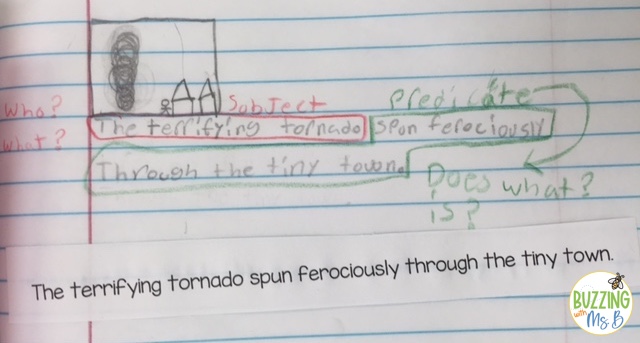 Subject Predicate
Who? The terrifying tornado spun ferociously
What? Through the tiny town.
Does what?
is?
The terrifying tornado spun ferociously through the tiny town.
BUZZING
with Ms. B